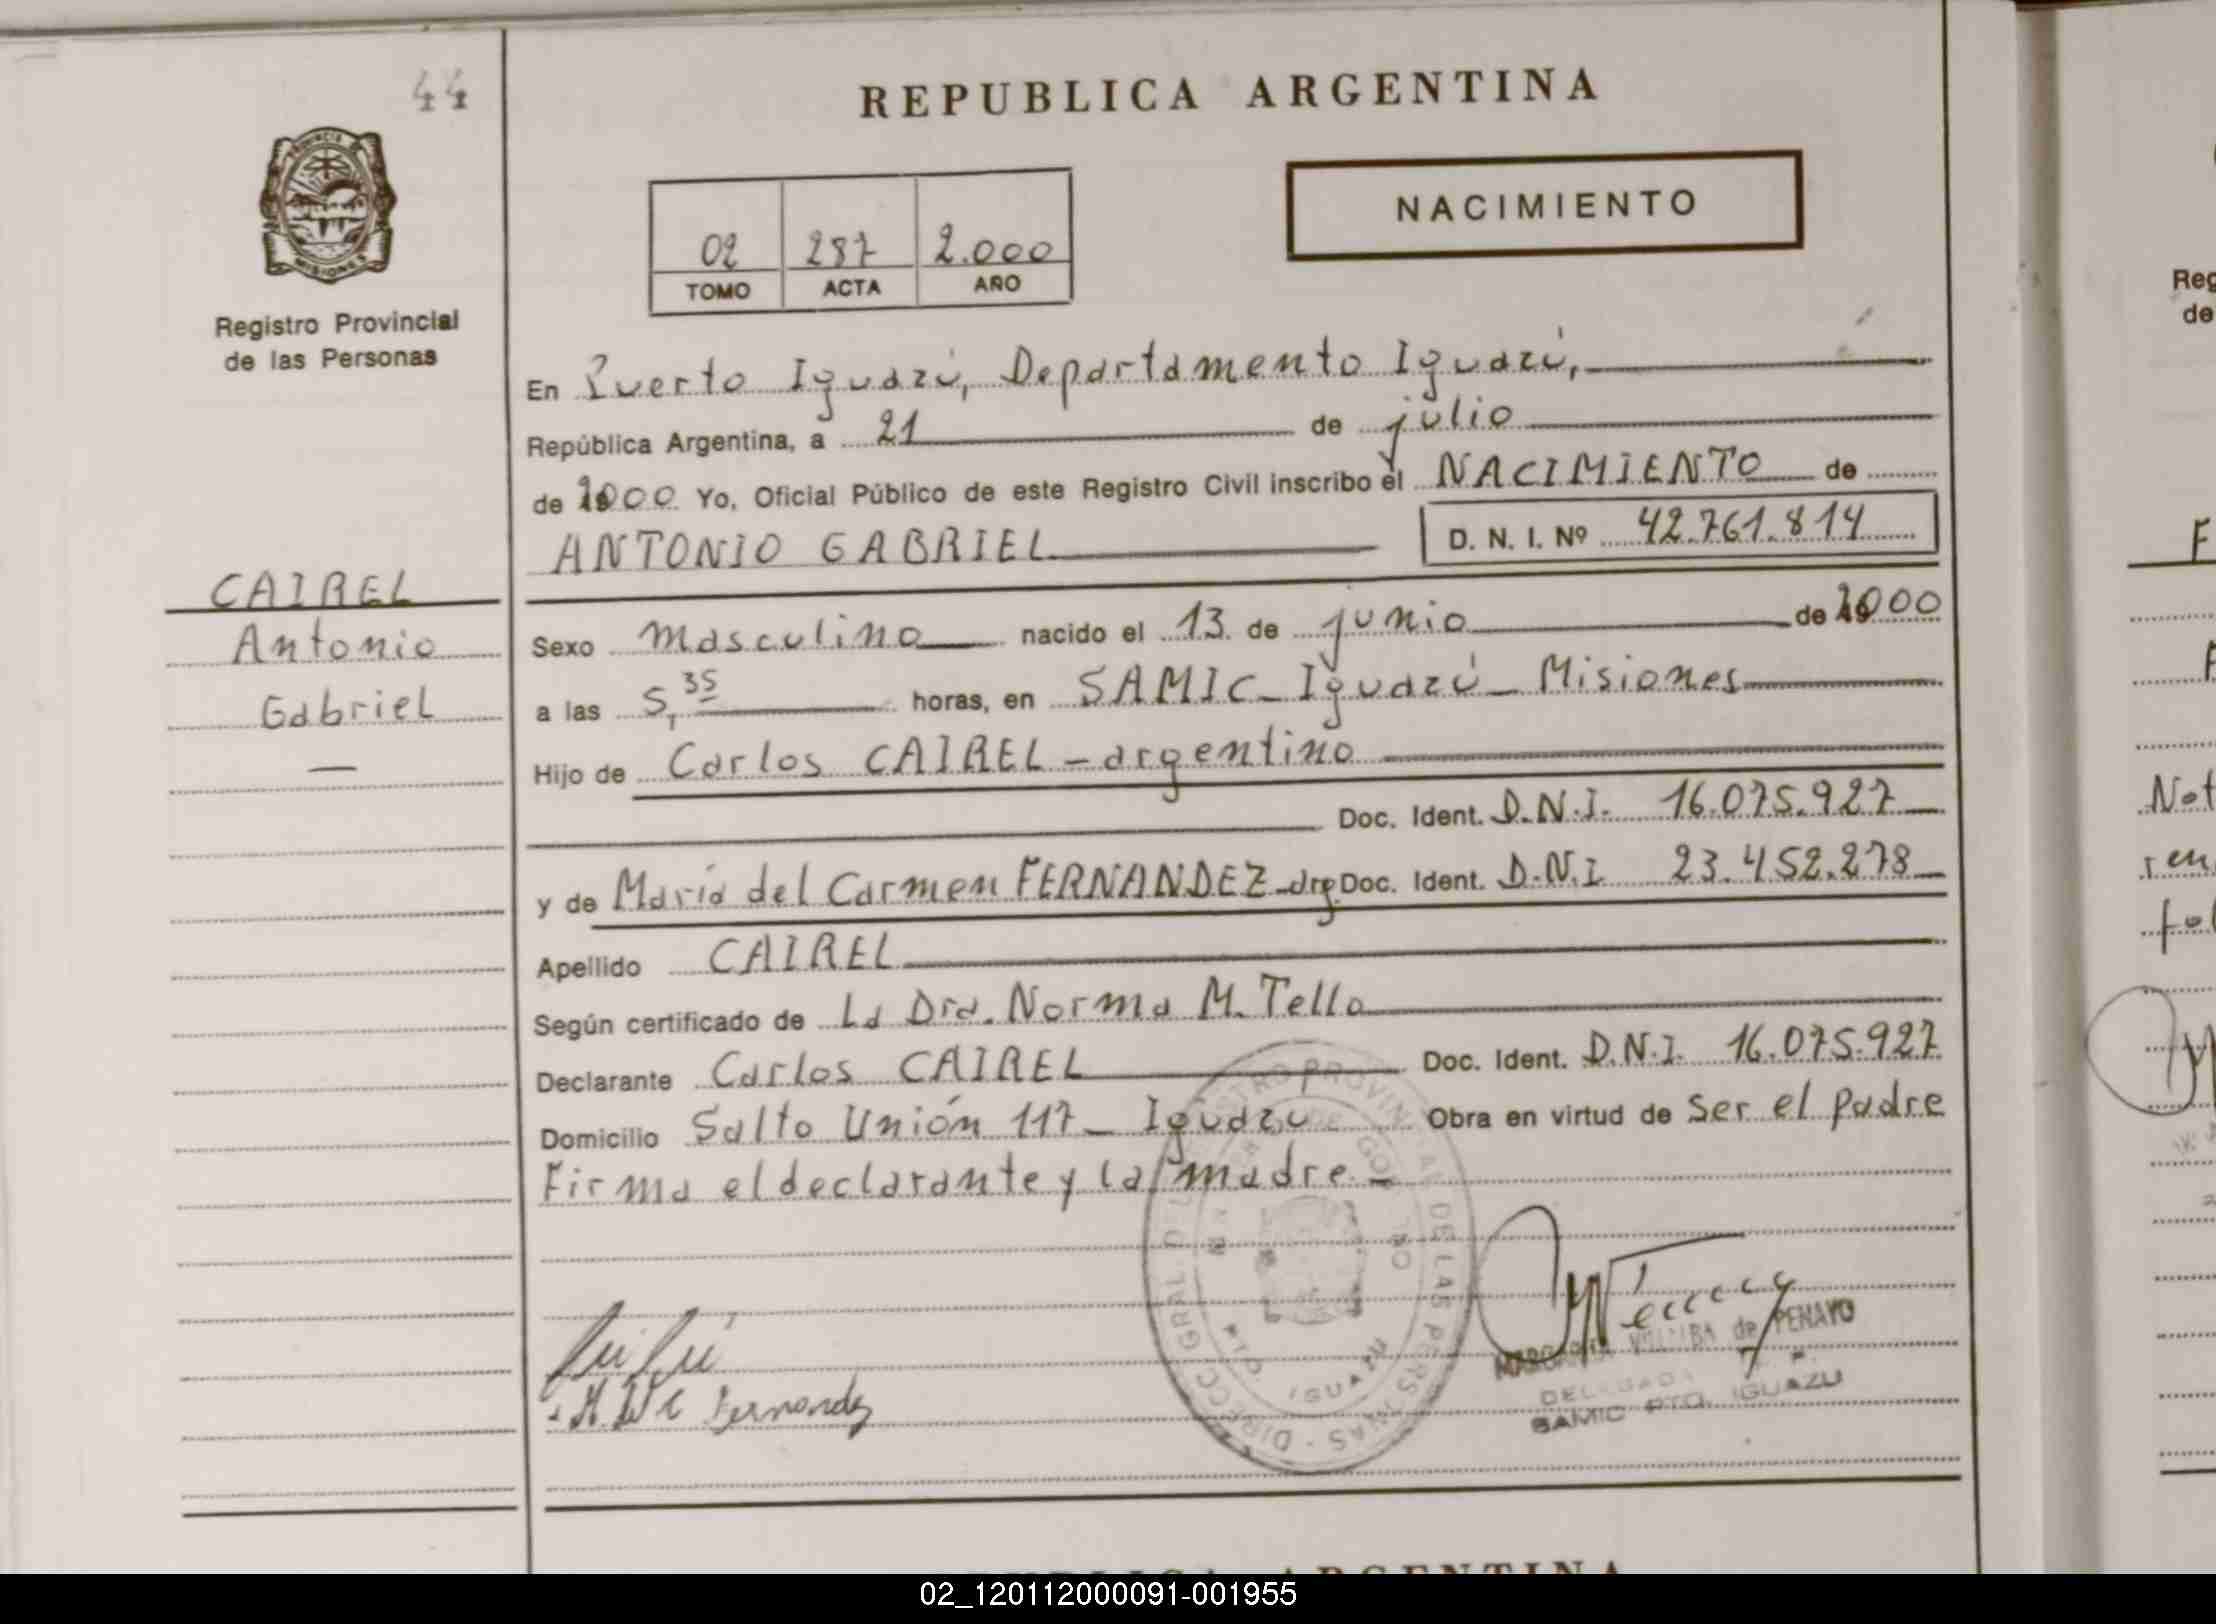 44
REPUBLICA ARGENTINA
PROVINCIA DE
MISIONES
Registro Provincial
de las Personas
NACIMIENTO
02 287 2.000
TOMO ACTA AÑO
En Puerto Iguazú, Departamento Iguazú,
República Argentina, a 21 de julio
de 2000 Yo, Oficial Público de este Registro Civil inscribo el NACIMIENTO de
ANTONIO GABRIEL D. N. I. Nº 42.761.814
CAIREL
Antonio
Gabriel
Sexo masculino nacido el 13 de junio de 2000
a las 5,35 horas, en SAMIC - Iguazú - Misiones
Hijo de Carlos CAIREL - argentino
Doc. Ident. D.N.I. 16.075.927
y de María del Carmen FERNANDEZ - arg. Doc. Ident. D.N.I. 23.452.278
Apellido CAIREL
Según certificado de La Dra. Norma M. Tello
Declarante Carlos CAIREL Doc. Ident. D.N.I. 16.075.927
Domicilio Salto Unión 117 - Iguazú Obra en virtud de ser el padre
Firma el declarante y la madre.-
DIRECC. GRAL. DEL REGISTRO PROVINCIAL DE LAS PERSONAS
PTO IGUAZU
Fernandez
MARGARITA VILLALBA de PENAYO
DELEGADA
SAMIC PTO. IGUAZU
Reg
de
F
Not
ren
fol
REPUBLICA ARGENTINA
02_120112000091-001955